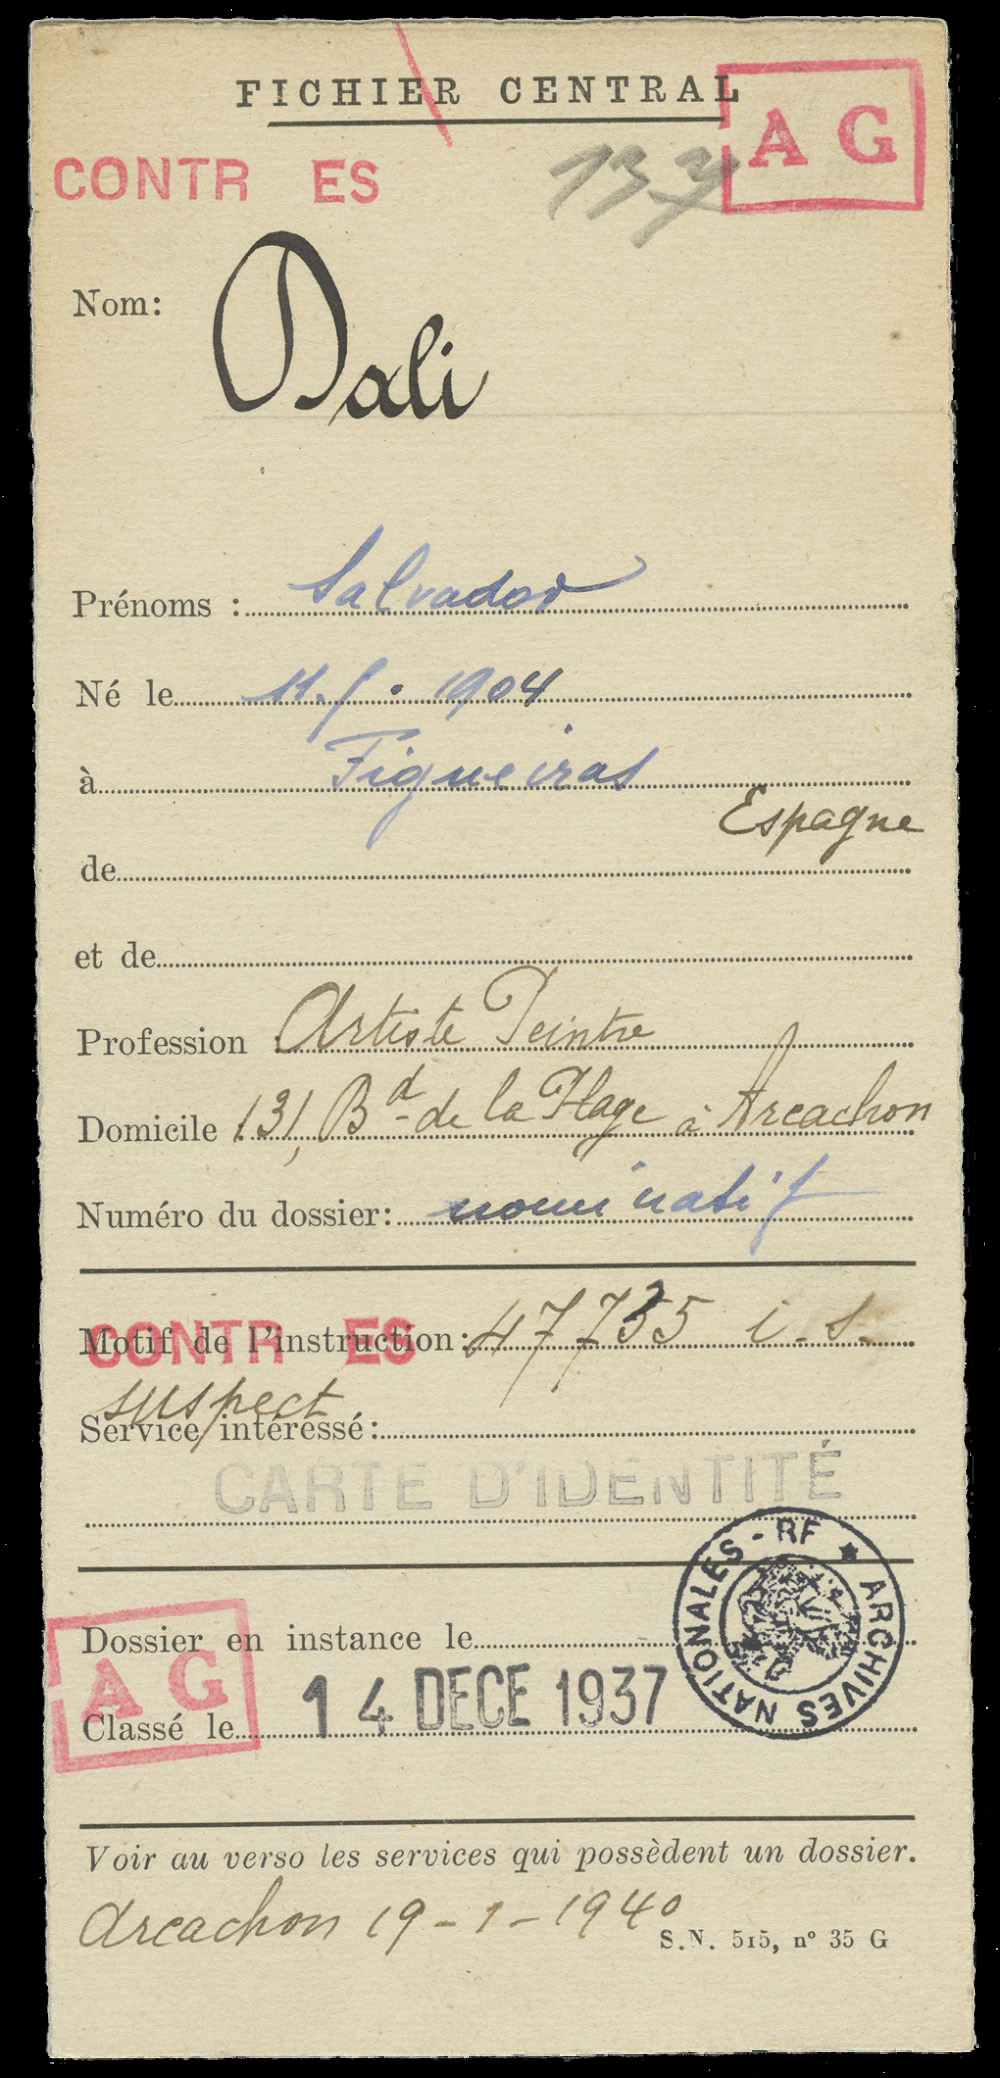 FICHIER CENTRAL
A G
CONTR ES
137
Nom: Dali
Prénoms : Salvador
Né le 11.5. 1904
à Figueiras
Espagne
de
et de
Profession Artiste Peintre
Domicile 131, Bd de la Plage à Arcachon
Numéro du dossier: nominatif
CONTR ES
Motif de l'instruction: 47735 i. s.
suspect
Service intéressé:
CARTE D'IDENTITÉ
ARCHIVES NATIONALES - RF
Dossier en instance le
A G
Classé le 14 DECE 1937
Voir au verso les services qui possèdent un dossier.
Arcachon 19-1-1940
S.N. 515, n° 35 G